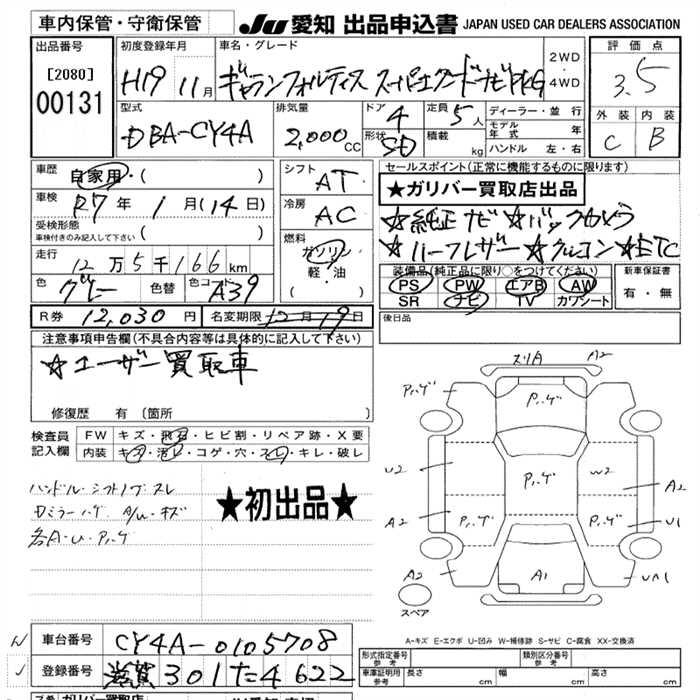 車内保管・守衛保管
JU 愛知 出品申込書 JAPAN USED CAR DEALERS ASSOCIATION
出品番号 [2080] 00131
初度登録年月 H19 11月
車名・グレード ギャランフォルティス スーパーエクシードナビPKG
2WD・4WD
評価点 3.5
外装 C 内装 B
型式 DBA-CY4A
排気量 2,000 CC
ドア 4 形状 SD
定員 5人 積載 kg
ディーラー・並行
モデル年式 年
ハンドル 左・右
車歴 自家用・( )
車検 R7年 1月(14日)
受検形態
車検付きのみ記入して下さい ( )
走行 12万5千166km
色 グレー 色替 色コード A39
シフト AT
冷房 AC
燃料 ガソリン 軽・油 ( )
R券 12,030円 名変期限 12月19日
セールスポイント(正常に機能するものに限ります)
★ガリバー買取店出品
☆純正ナビ☆バックカメラ
☆ハーフレザー☆クルコン☆ETC
装備品(純正品に限り○をつけてください)
PS PW エアB AW
SR ナビ TV カワシート
新車保証書 有・無
後日品
注意事項申告欄(不具合内容等は具体的に記入して下さい)
☆ユーザー買取車
修復歴 有 [箇所
検査員記入欄
FW キズ・飛石・ヒビ割・リペア跡・X要
内装 キズ・汚レ・コゲ・穴・スレ・キレ・破レ
ハンドル・シフトノブ スレ
Dミラーハゲ A/W・キズ
各A・U・Pハゲ
★初出品★
スリA A2
Pハゲ Pハゲ
U2 Pハゲ W2 A2
A2 Pハゲ Pハゲ U1
A2 A1 UA1
スペア
A-キズ E-エクボ U-凹み W-補修跡 S-サビ C-腐食 XX-交換済
車台番号 CY4A-0105708
登録番号 滋賀301た4622
形式指定番号 参考
類別区分番号 参考
車庫証明用 参考 長さ 幅 高さ
ガリバー買取店